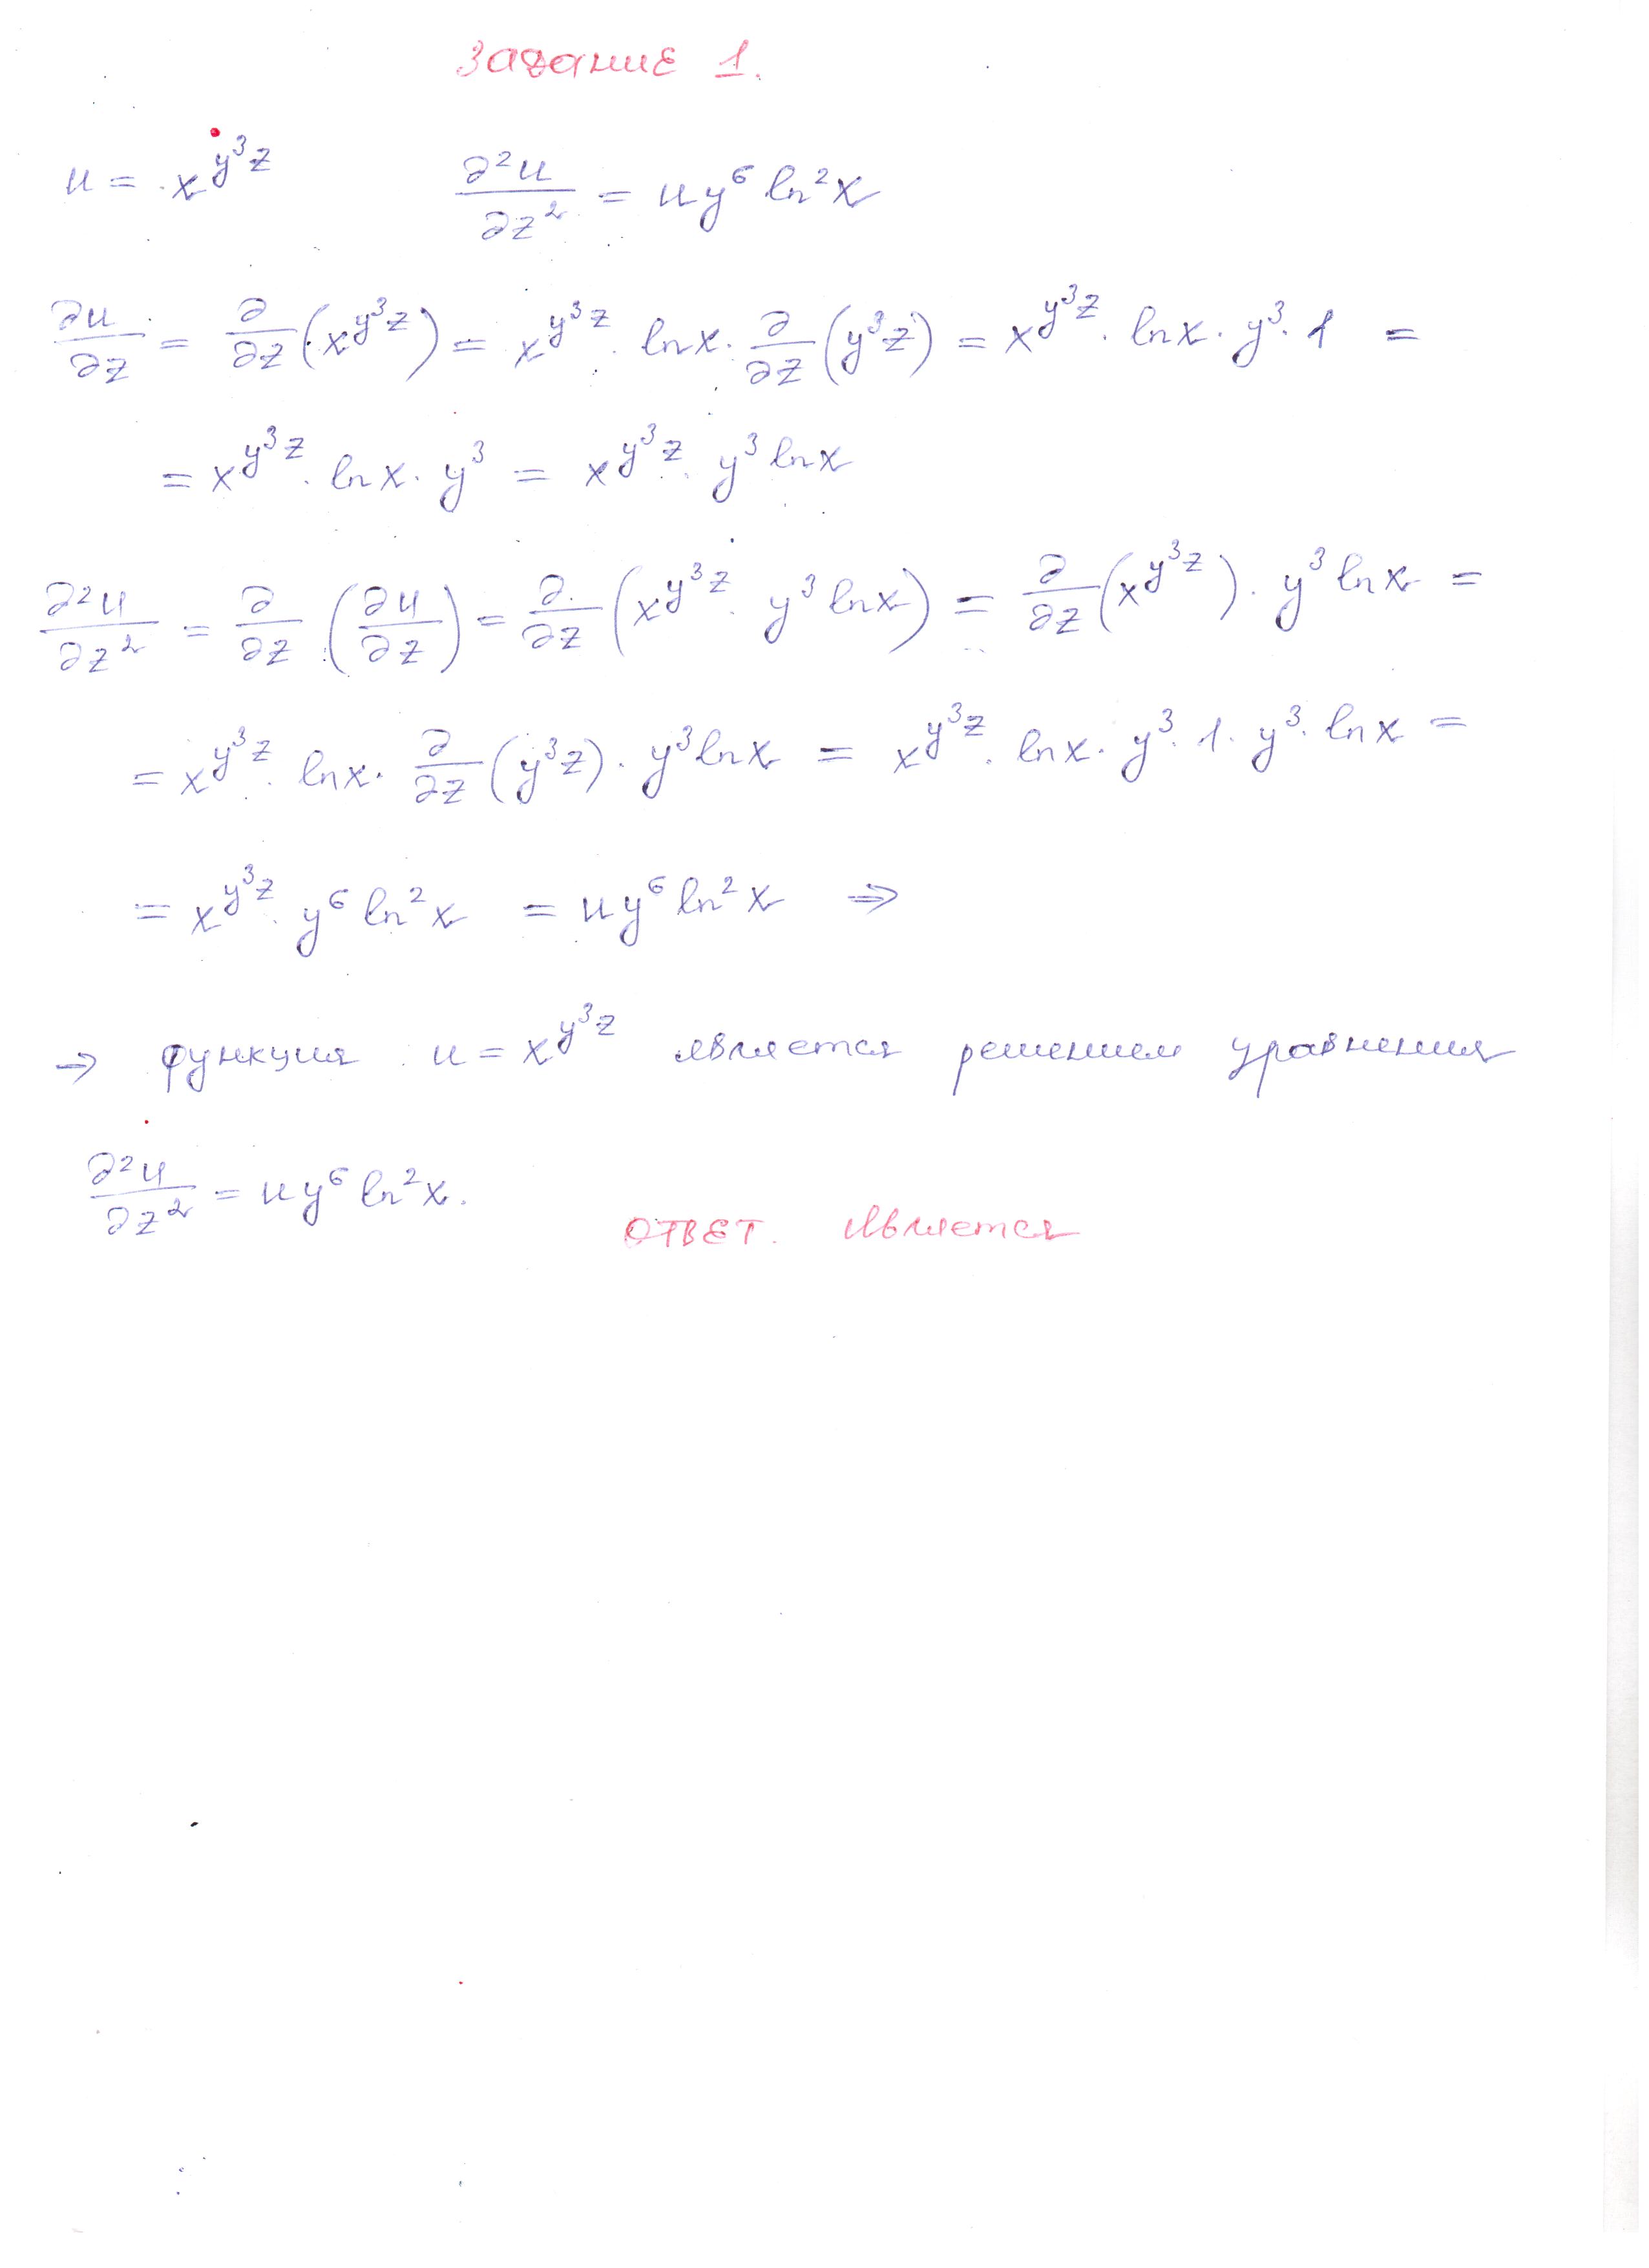 Задание 1.
u = x^{y^3 z}    ∂²u/∂z² = u y⁶ ln²x
∂u/∂z = ∂/∂z (x^{y^3 z}) = x^{y^3 z} · ln x · ∂/∂z (y³z) = x^{y^3 z} · ln x · y³ · 1 =
= x^{y^3 z} · ln x · y³ = x^{y^3 z} · y³ ln x
∂²u/∂z² = ∂/∂z (∂u/∂z) = ∂/∂z (x^{y^3 z} · y³ ln x) = ∂/∂z (x^{y^3 z}) · y³ ln x =
= x^{y^3 z} · ln x · ∂/∂z (y³z) · y³ ln x = x^{y^3 z} · ln x · y³ · 1 · y³ · ln x =
= x^{y^3 z} · y⁶ ln²x = u y⁶ ln²x ⇒
⇒ функция u = x^{y^3 z} является решением уравнения
∂²u/∂z² = u y⁶ ln²x.
ОТВЕТ. Является